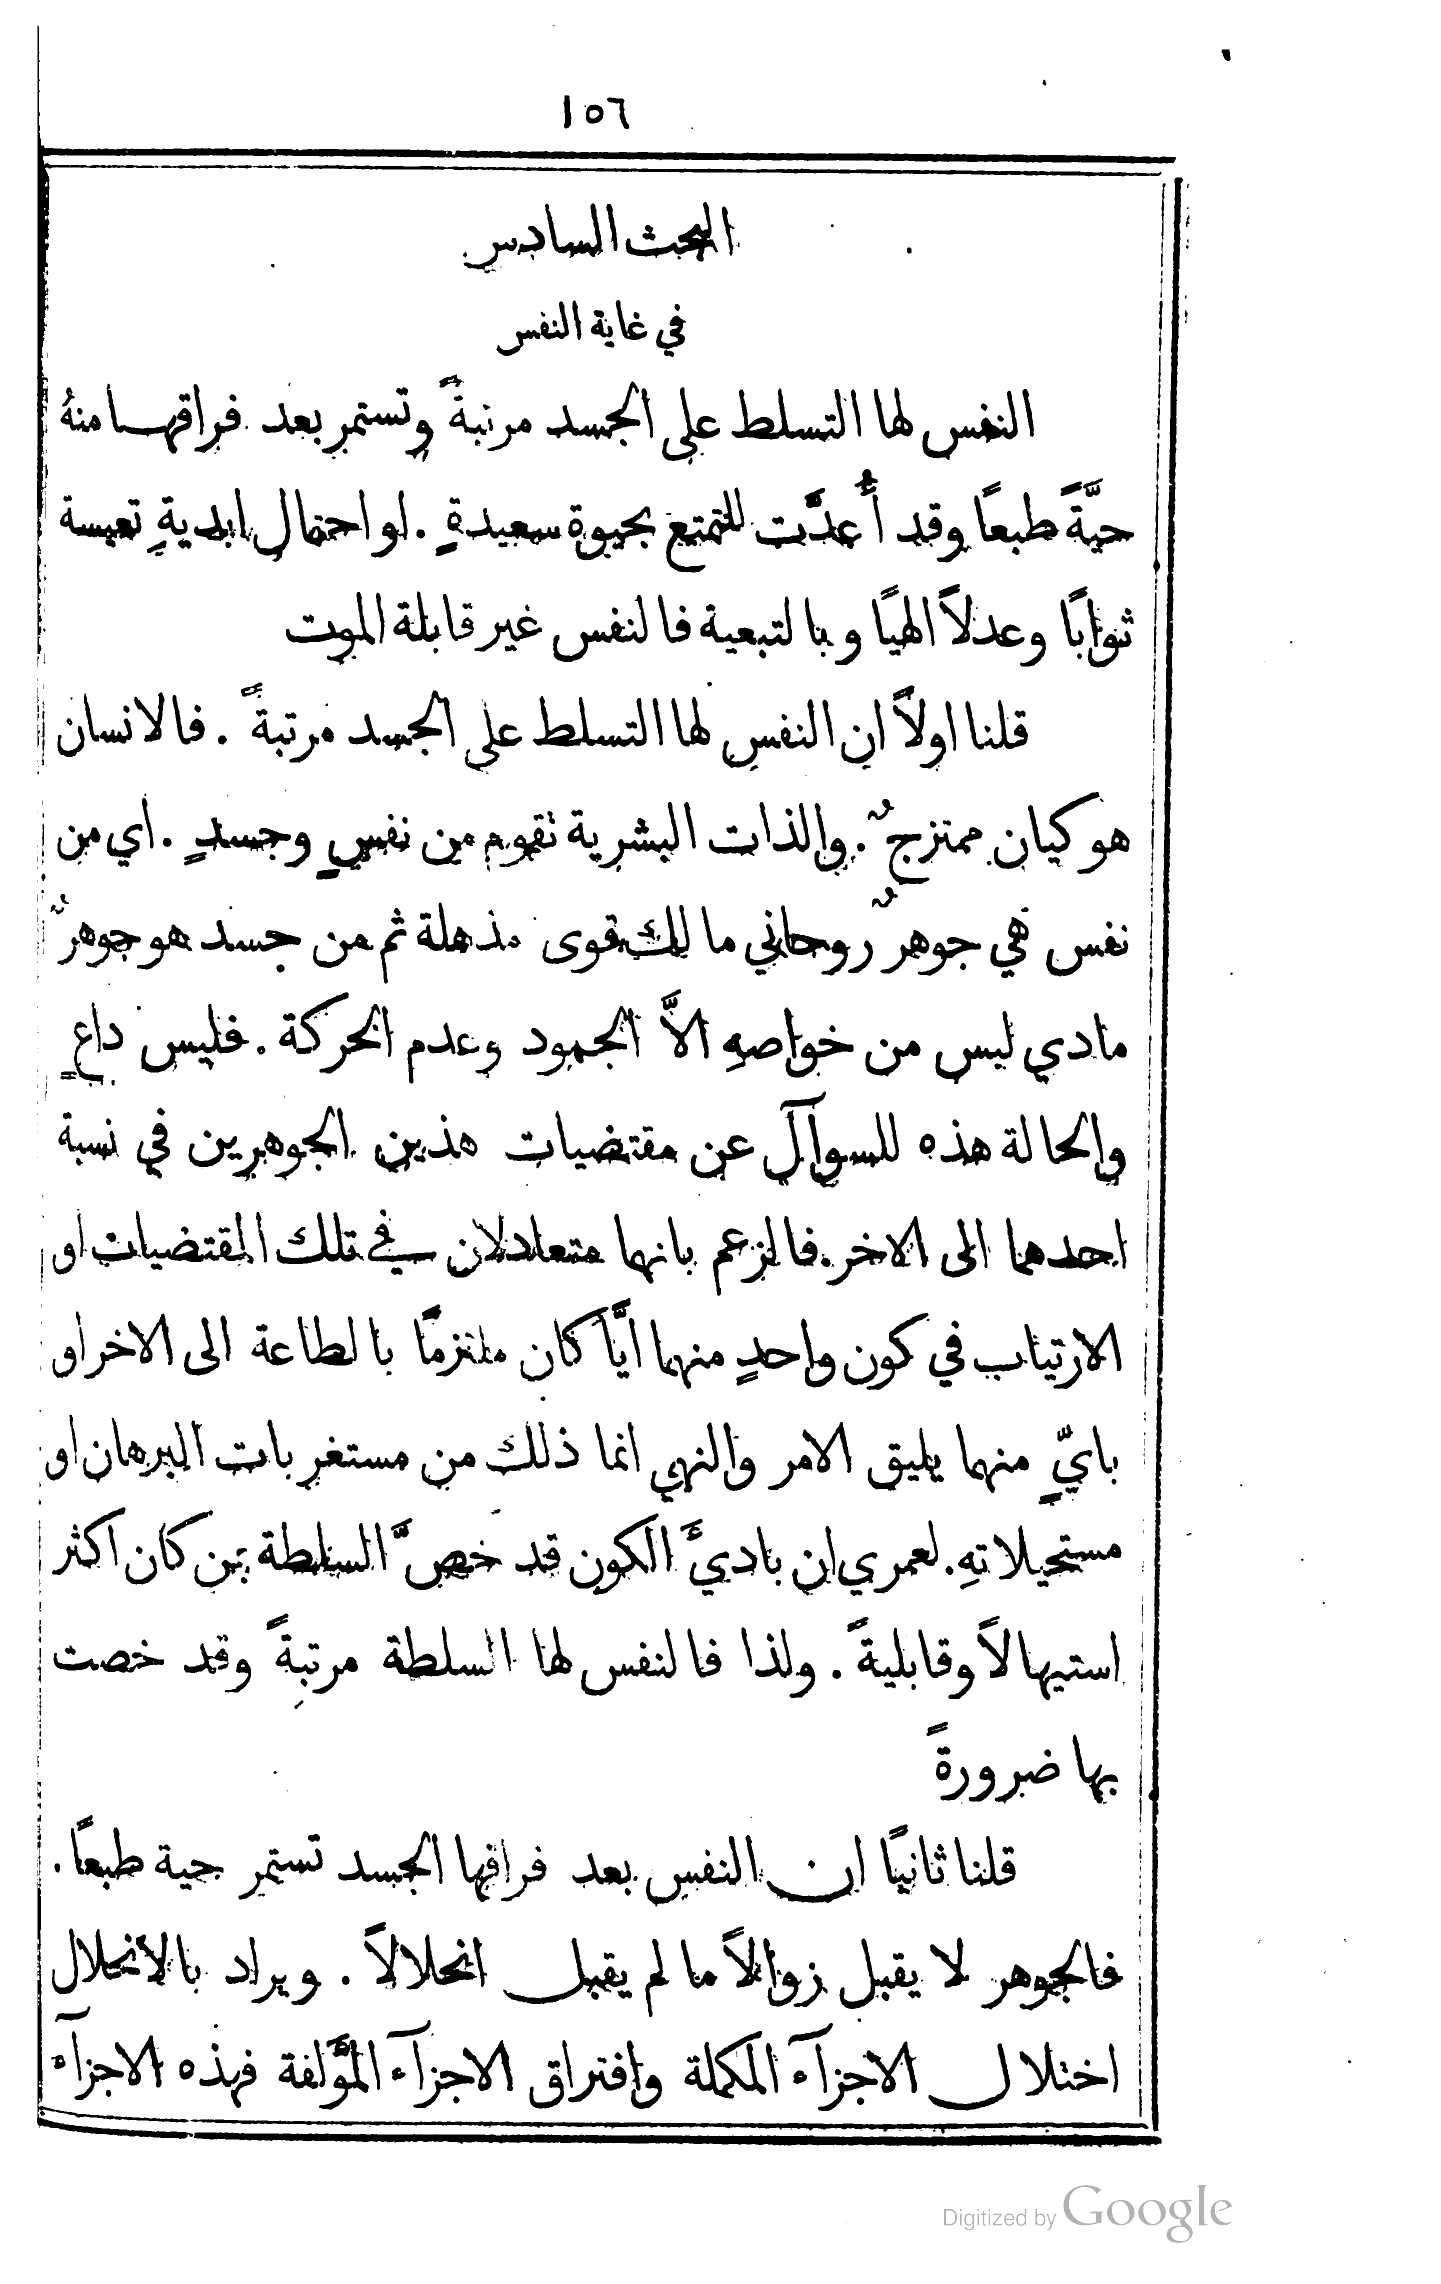 ١٥٦
البحث السادس
في غاية النفس
النفس لها التسلط على الجسد مرتبةً وتستمر بعد فراقها منهُ
حيَّةً طبعًا وقد أُعدَّت للتمتع بحيوة سعيدةٍ . او احتمال ابديةٍ تعيسة
ثوابًا وعدلاً الهيًا وبالتبعية فالنفس غير قابلة الموت
قلنا اولاً ان النفس لها التسلط على الجسد مرتبةً . فالانسان
هو كيان ممتزجٌ . والذات البشرية تقوم من نفسٍ وجسدٍ . اي من
نفس هي جوهرٌ روحاني مالك قوى مذهلة ثم من جسد هو جوهرٌ
مادي ليس من خواصهِ الاَّ الجمود وعدم الحركة . فليس داعٍ
والحالة هذه للسوآل عن مقتضيات هذين الجوهرين في نسبة
احدهما الى الاخر . فالزعم بانهما متعادلان في تلك المقتضيات او
الارتياب في كون واحدٍ منهما ايَّا كان ملتزمًا بالطاعة الى الاخر او
بايٍّ منهما يليق الامر والنهي انما ذلك من مستغربات البرهان او
مستحيلاتهِ . لعمري ان باديَّ الكون قد خصَّ السلطة بمن كان اكثر
استيهالاً وقابليةً . ولذا فالنفس لها السلطة مرتبةً وقد خصت
بها ضرورةً
قلنا ثانيًا ان النفس بعد فراقها الجسد تستمر حية طبعًا .
فالجوهر لا يقبل زوالاً ما لم يقبل انحلالاً . ويراد بالأنحلال
اختلال الاجزآء المكملة وافتراق الاجزآء المؤَلفة فهذه الاجزآء
Digitized by Google